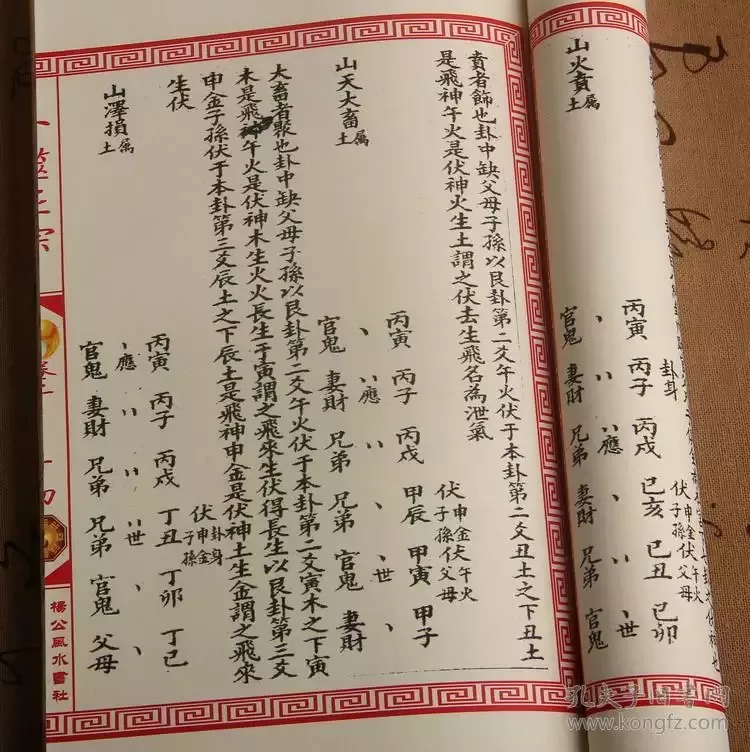 山火賁 屬土
卦身
丙寅 丙子 丙戌 己亥 己丑 己卯
伏申金 伏午火
子孫 父母
應 世
官鬼 妻財 兄弟 妻財 兄弟 官鬼
賁者飾也卦中缺父母子孫以艮卦第二爻午火伏于本卦第二爻丑土之下丑土
是飛神午火是伏神火生土謂之伏去生飛名為泄氣
山天大畜 屬土
伏申金 伏午火
子孫 父母
丙寅 丙子 丙戌 甲辰 甲寅 甲子
應 世
官鬼 妻財 兄弟 兄弟 官鬼 妻財
大畜者聚也卦中缺父母子孫以艮卦第二爻午火伏于本卦第二爻寅木之下寅
木是飛神午火是伏神木生火火長生于寅謂之飛來生伏得長生以艮卦第三爻
申金子孫伏于本卦第三爻辰土之下辰土是飛神申金是伏神土生金謂之飛來
生伏
山澤損 屬土
卦身
伏申金
子孫
丙寅 丙子 丙戌 丁丑 丁卯 丁巳
應 世
官鬼 妻財 兄弟 兄弟 官鬼 父母
卜筮正宗
楊公風水書社
孔夫子旧书网
www.kongfz.com